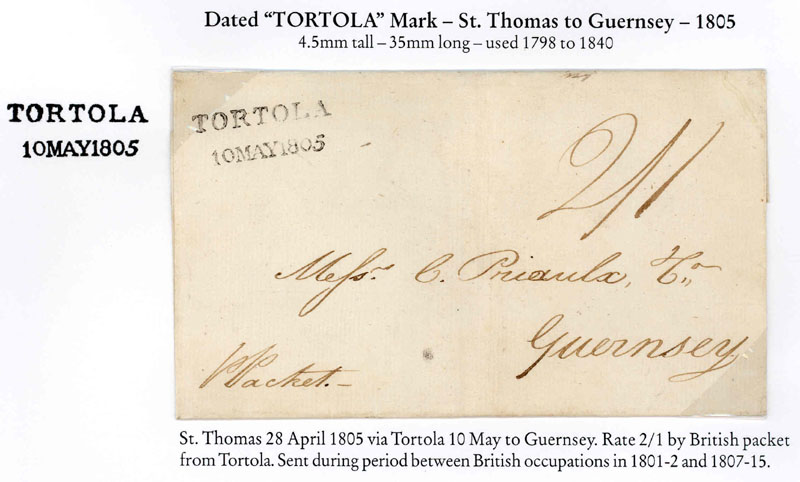 Dated “TORTOLA” Mark – St. Thomas to Guernsey – 1805
4.5mm tall – 35mm long – used 1798 to 1840
TORTOLA
10MAY1805
TORTOLA
10MAY1805
2/1
Messrs. C. Priaulx, Co
Guernsey
P Packet.–
St. Thomas 28 April 1805 via Tortola 10 May to Guernsey. Rate 2/1 by British packet
from Tortola. Sent during period between British occupations in 1801-2 and 1807-15.